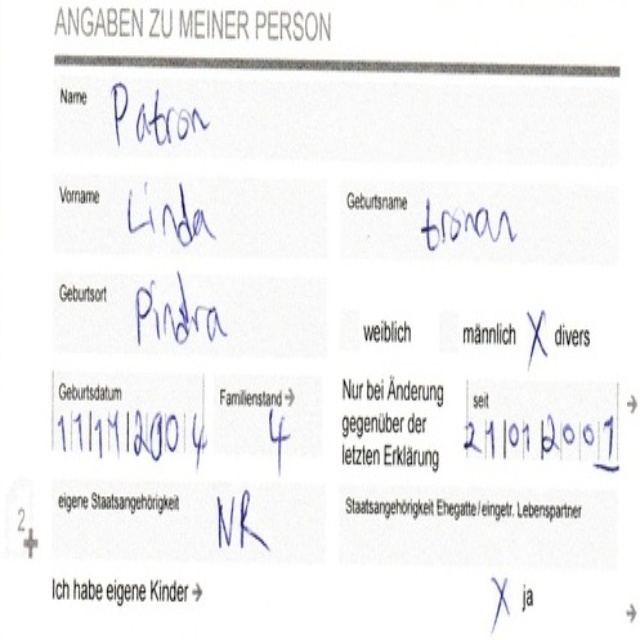 ANGABEN ZU MEINER PERSON
Name Patron
Vorname Linda Geburtsname tronan
Geburtsort Pindra
weiblich männlich X divers
Geburtsdatum Familienstand → Nur bei Änderung gegenüber der letzten Erklärung seit →
11112004 4 21012001
eigene Staatsangehörigkeit NR Staatsangehörigkeit Ehegatte/eingetr. Lebenspartner
2
Ich habe eigene Kinder → X ja →